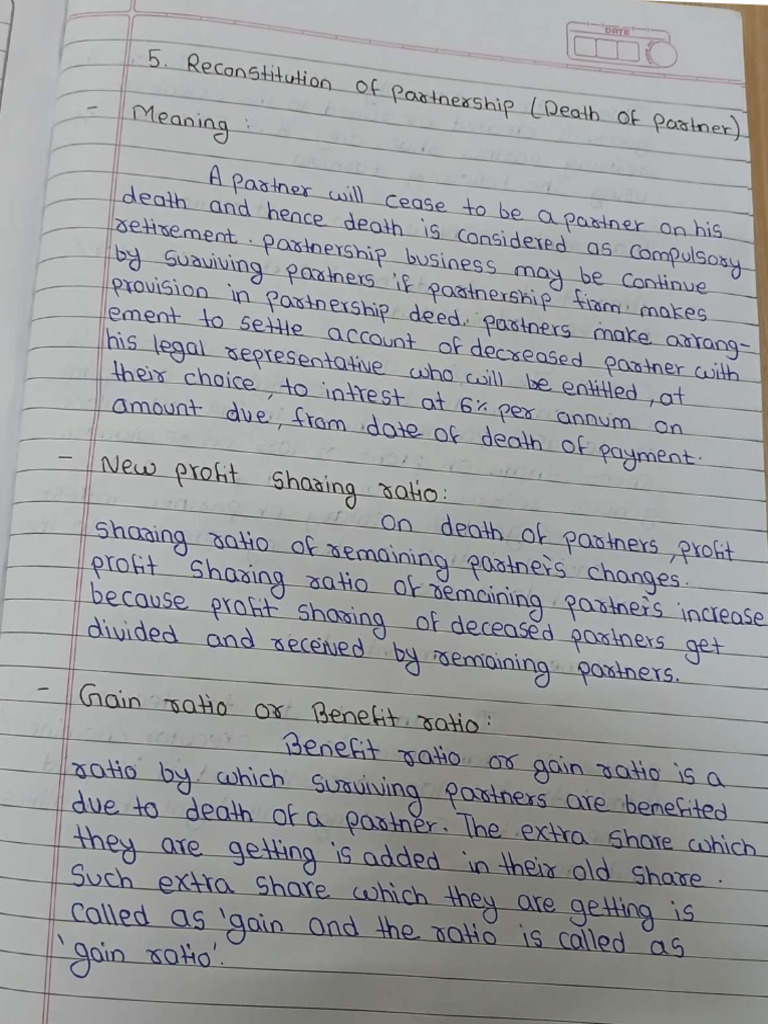 DATE
5. Reconstitution of partnership (Death of partner)
- Meaning :
A partner will cease to be a partner on his
death and hence death is considered as compulsory
retirement. partnership business may be continue
by surviving partners if partnership firm makes
provision in partnership deed. partners make arrang-
ement to settle account of decreased partner with
his legal representative who will be entitled, at
their choice, to intrest at 6% per annum on
amount due, from date of death of payment.
- New profit sharing ratio:
On death of partners, profit
sharing ratio of remaining partner's changes.
profit sharing ratio of remaining partner's increase
because profit sharing of deceased partners get
divided and received by remaining partners.
- Gain ratio or Benefit ratio:
Benefit ratio or gain ratio is a
ratio by which surviving partners are benefited
due to death of a partner. The extra share which
they are getting is added in their old share.
Such extra share which they are getting is
called as 'gain and the ratio is called as
'gain ratio'.